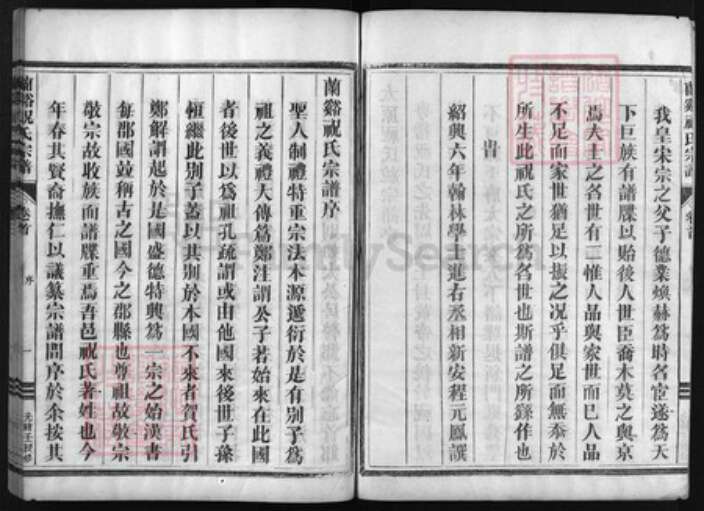 蘭谿祝氏宗譜
卷首
我皇宋宗之父子德業煥赫爲時名宦遂爲天
下巨族有譜牒以貽後人世臣喬木莫之與京
焉夫士之名世有二惟人品與家世而已人品
不足而家世猶足以振之况乎俱足而無忝於
所生此祝氏之所爲名世也斯譜之所錄作也
旹
紹興六年翰林學士進右丞相新安程元鳳譔
蘭谿祝氏宗譜序
聖人制禮特重宗法本源遞衍於是有別子爲
祖之義禮大傳爲鄭注謂公子若始來在此國
者後世以爲祖孔疏謂或由他國來後世子孫
恒繼此別子蓋以其別於本國不來者賀氏引
鄭解謂起於是國盛德特興爲一宗之始漢書
每郡國竝稱古之國今之郡縣也尊祖故敬宗
敬宗故收族而譜牒重焉吾邑祝氏著姓也今
年春其賢裔撫仁以議纂宗譜問序於余按其
蘭谿祝氏宗譜
卷首
序
一
FamilySearch